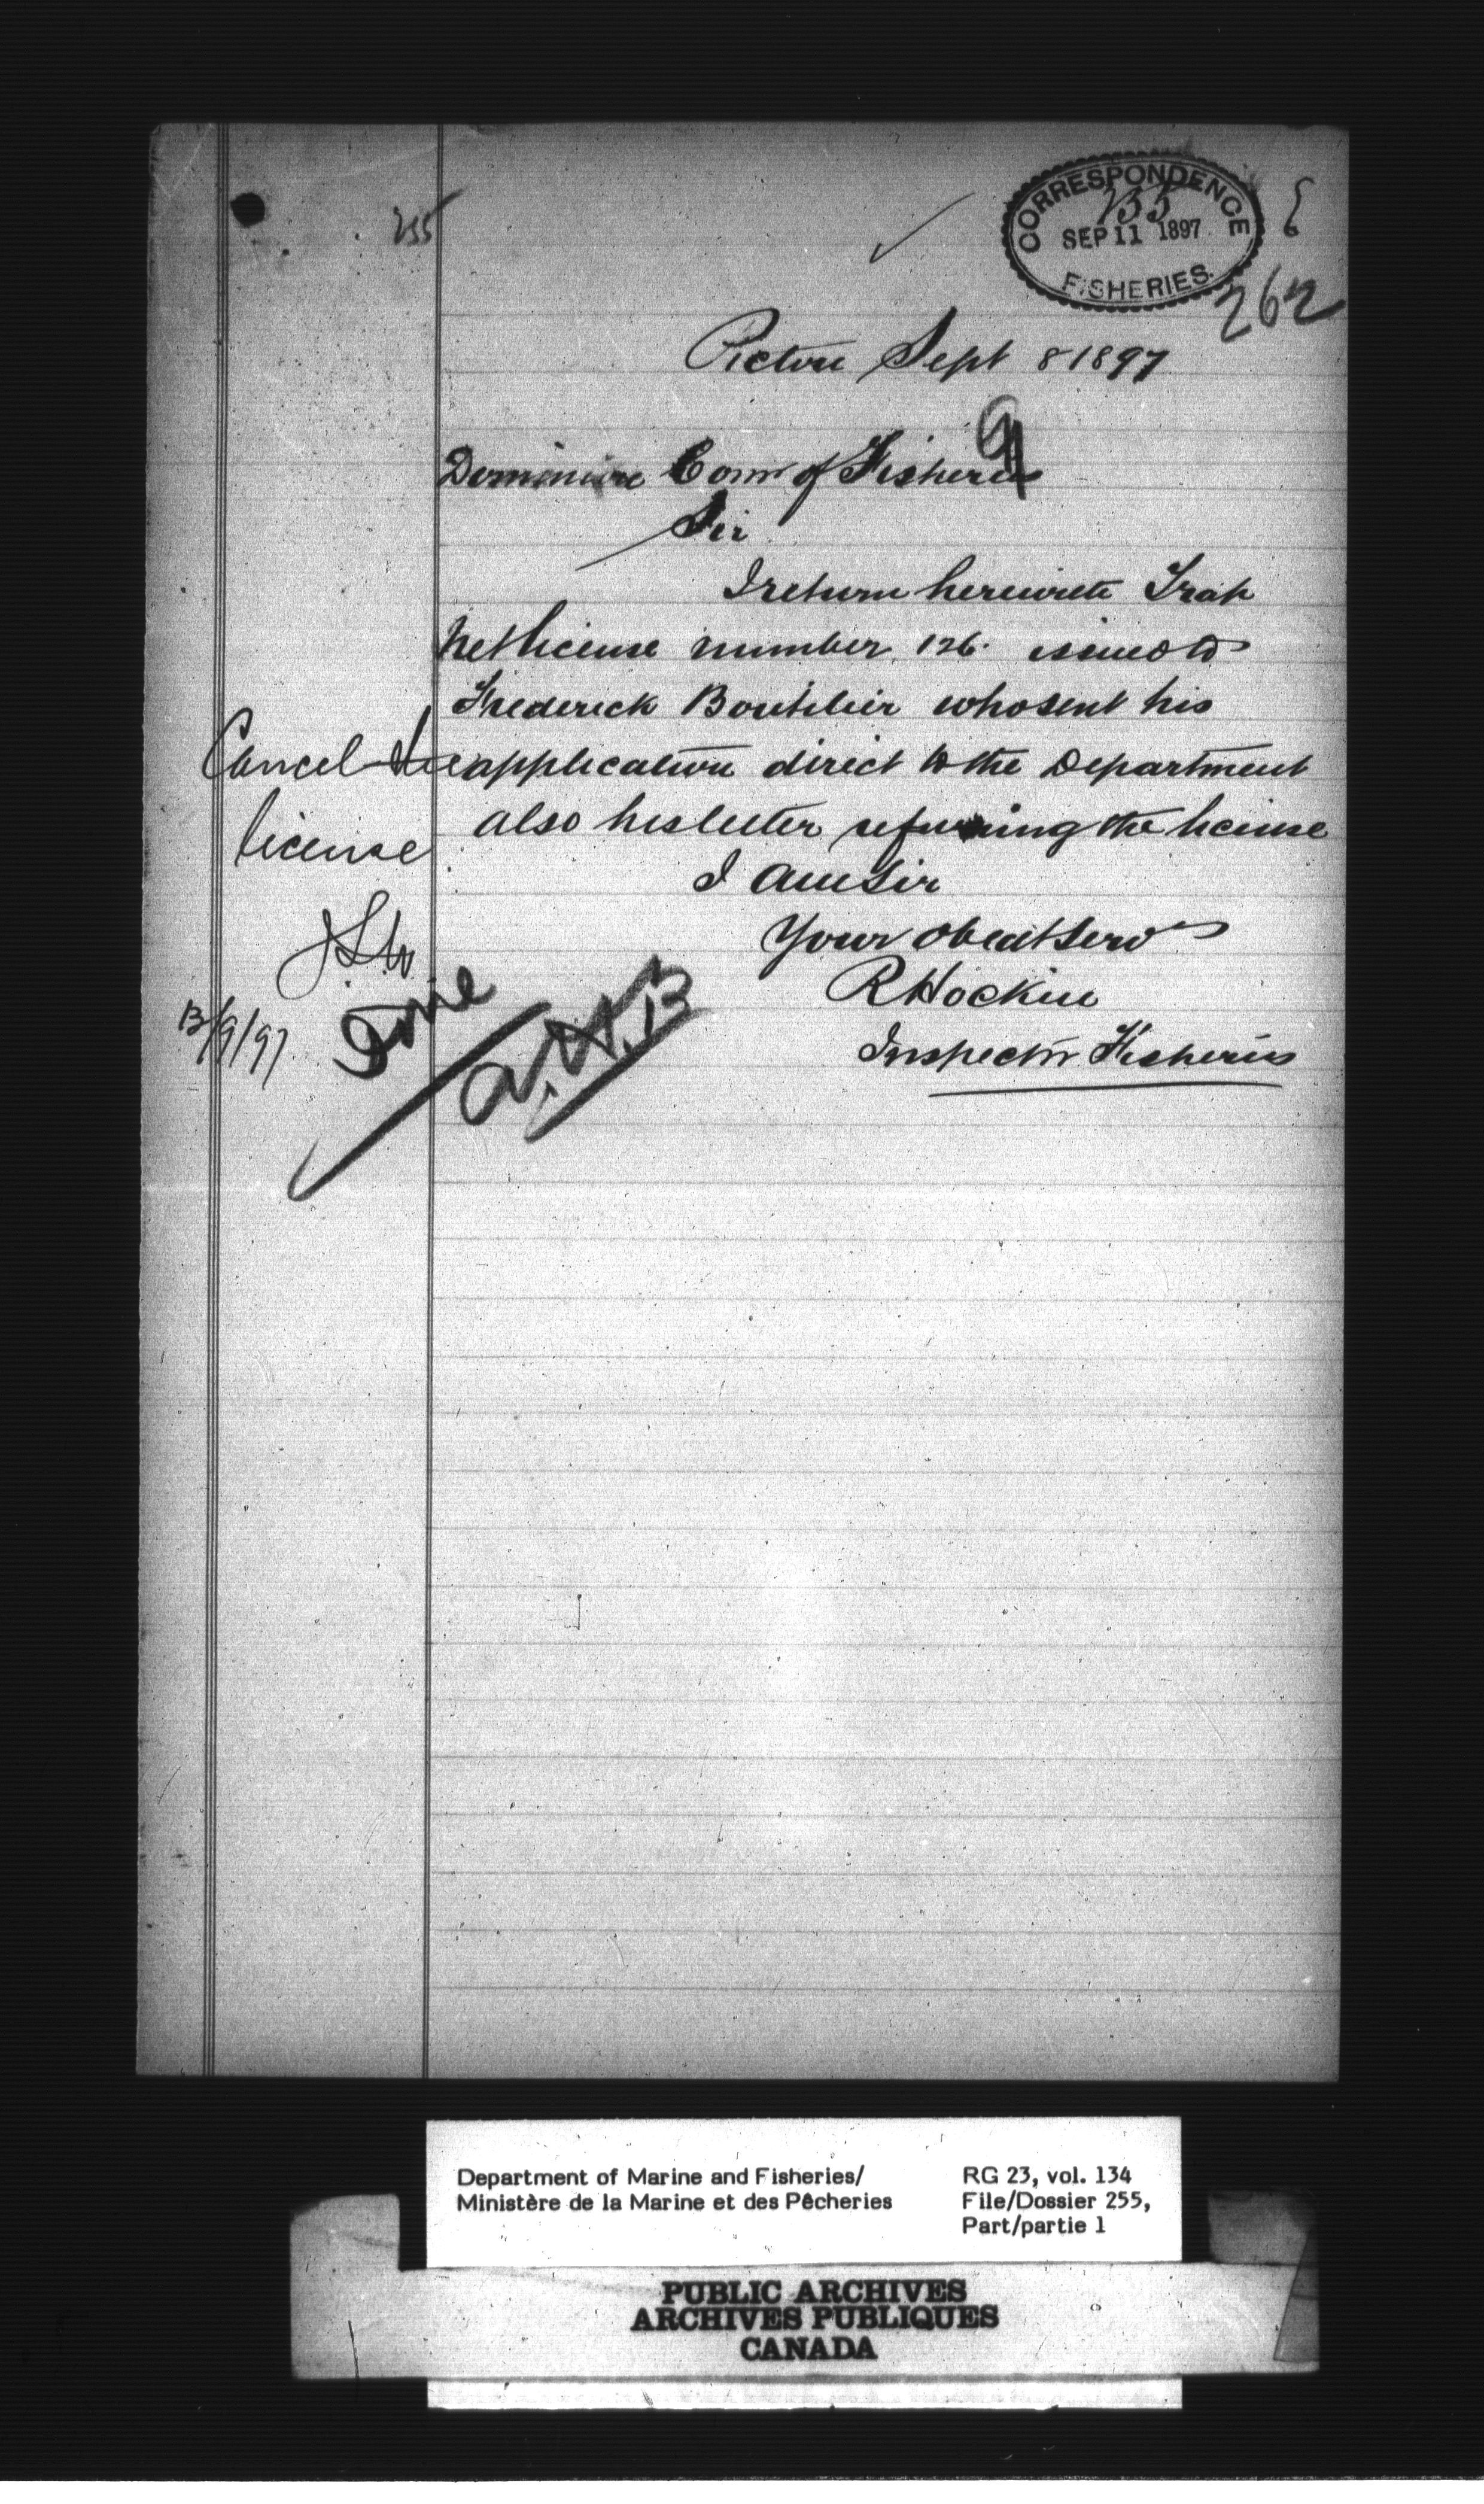 255
CORRESPONDENCE
255
SEP 11 1897
FISHERIES.
262
Pictou Sept 8 1897
9
Dominion Comr of Fisheries
Sir
I return herewith Trap
Net license number 126. issued to
Frederick Boutilier who sent his
application direct to the Department
also his letter refusing the license
I am Sir
Your obedt Serv
R Hockin
Inspectr Fisheries
Cancel the
license
13/9/97
Done
A.H.B
Department of Marine and Fisheries/
Ministère de la Marine et des Pêcheries
RG 23, vol. 134
File/Dossier 255,
Part/partie 1
PUBLIC ARCHIVES
ARCHIVES PUBLIQUES
CANADA